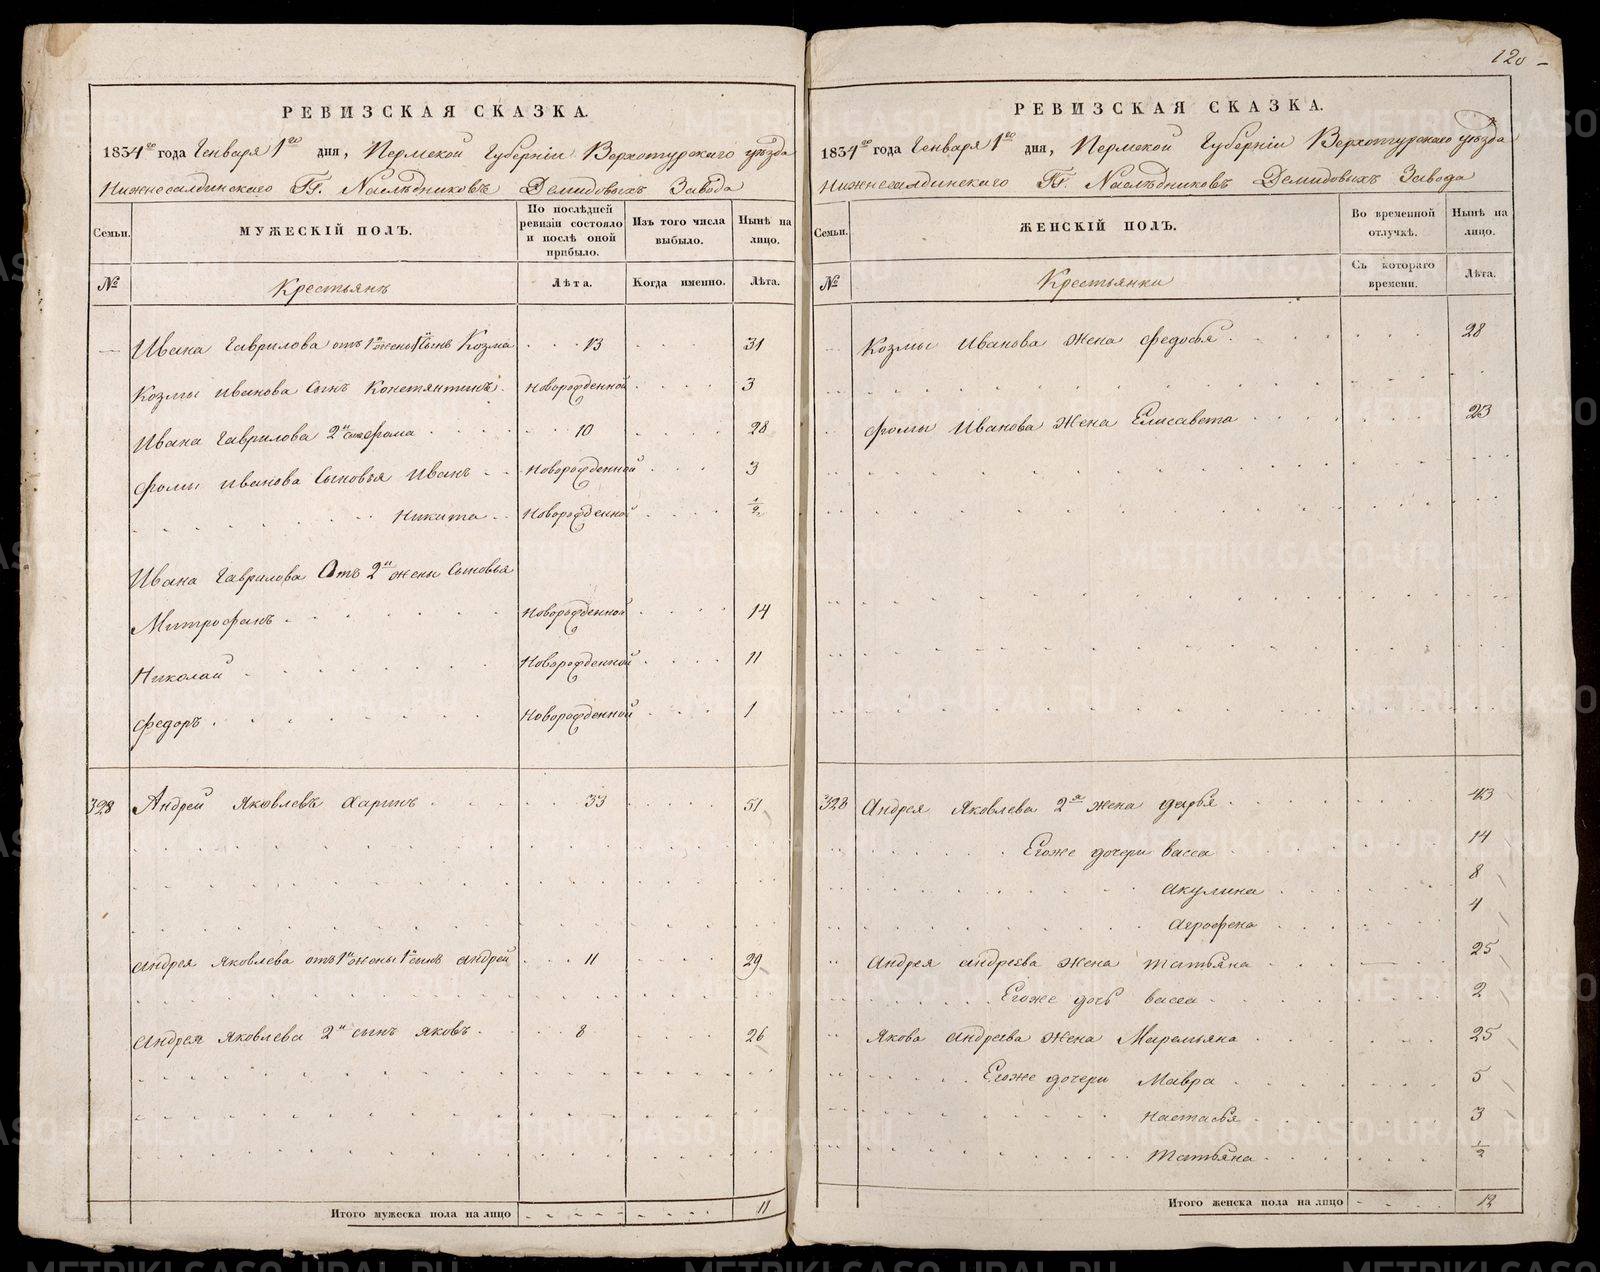 120
РЕВИЗСКАЯ СКАЗКА.
1834го года Генваря 1го дня, Пермской Губерніи Верхотурскаго уѣзда
Нижнесалдинскаго Гг. Наслѣдниковъ Демидовыхъ Завода
Семьи. МУЖЕСКІЙ ПОЛЪ. По послѣдней ревизіи состояло и послѣ оной прибыло. Изъ того числа выбыло. Нынѣ на лицо.
№ Крестьянъ Лѣта. Когда именно. Лѣта.
Ивана Гаврилова отъ 1й жены 1й Сынъ Козма 13 31
Козмы Иванова Сынъ Констянтинъ Новорожденной 3
Ивана Гаврилова 2й сынъ Фома 10 28
Фомы Иванова Сыновья Иванъ Новорожденной 3
Никита Новорожденной 1/2
Ивана Гаврилова Отъ 2й жены Сыновья
Митрофанъ Новорожденной 14
Николай Новорожденной 11
Федоръ Новорожденной 1
328 Андрей Яковлевъ Харинъ 33 51
Андрея Яковлева отъ 1й жены 1й сынъ Андрей 11 29
Андрея Яковлева 2й сынъ Яковъ 8 26
Итого мужеска пола на лицо 11
РЕВИЗСКАЯ СКАЗКА.
1834го года Генваря 1го дня, Пермской Губерніи Верхотурскаго уѣзда
Нижнесалдинскаго Гг. Наслѣдниковъ Демидовыхъ Завода
Семьи. ЖЕНСКІЙ ПОЛЪ. Во временной отлучкѣ. Нынѣ на лицо.
№ Крестьянки Съ котораго времени. Лѣта.
Козмы Иванова Жена Федосья 28
Фомы Иванова Жена Елисавета 23
328 Андрея Яковлева 2я жена Дарья 43
Егоже дочери Васса 14
Акулина 8
Агрофена 4
Андрея Андреева Жена Татьяна 25
Егоже дочь Васса 2
Якова Андреева Жена Маремьяна 25
Егоже дочери Мавра 5
Настасья 3
Татьяна 1/2
Итого женска пола на лицо 12
METRIKI.GASO-URAL.RU